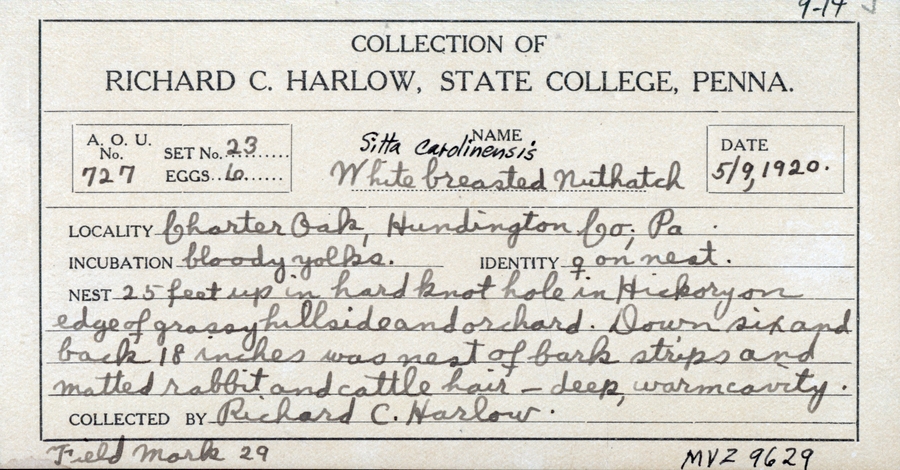 9-14
COLLECTION OF
RICHARD C. HARLOW, STATE COLLEGE, PENNA.
A. O. U. No. 727
SET No. 23
EGGS 6
NAME
Sitta carolinensis
White breasted Nuthatch
DATE
5/9, 1920.
LOCALITY Charter Oak, Hundington Co; Pa.
INCUBATION bloody yolks. IDENTITY ♀ on nest.
NEST 25 feet up in hard knot hole in Hickory on
edge of grassy hillside and orchard. Down six and
back 18 inches was nest of bark strips and
matted rabbit and cattle hair – deep, warm cavity.
COLLECTED BY Richard C. Harlow.
Field Mark 29
MVZ 9629